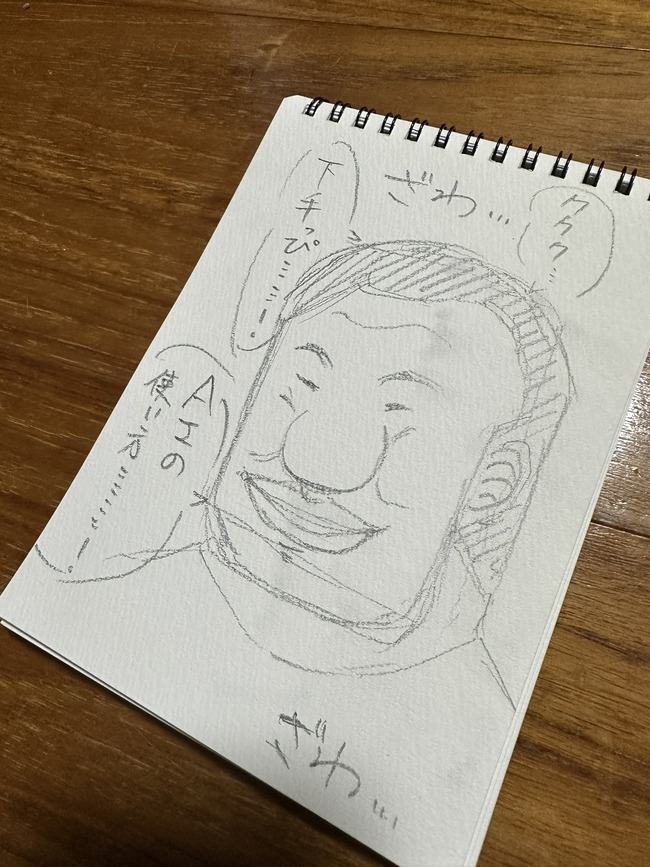 ククク…
ざわ…
下手っぴ……!
AIの
使い方……!
ざわ…